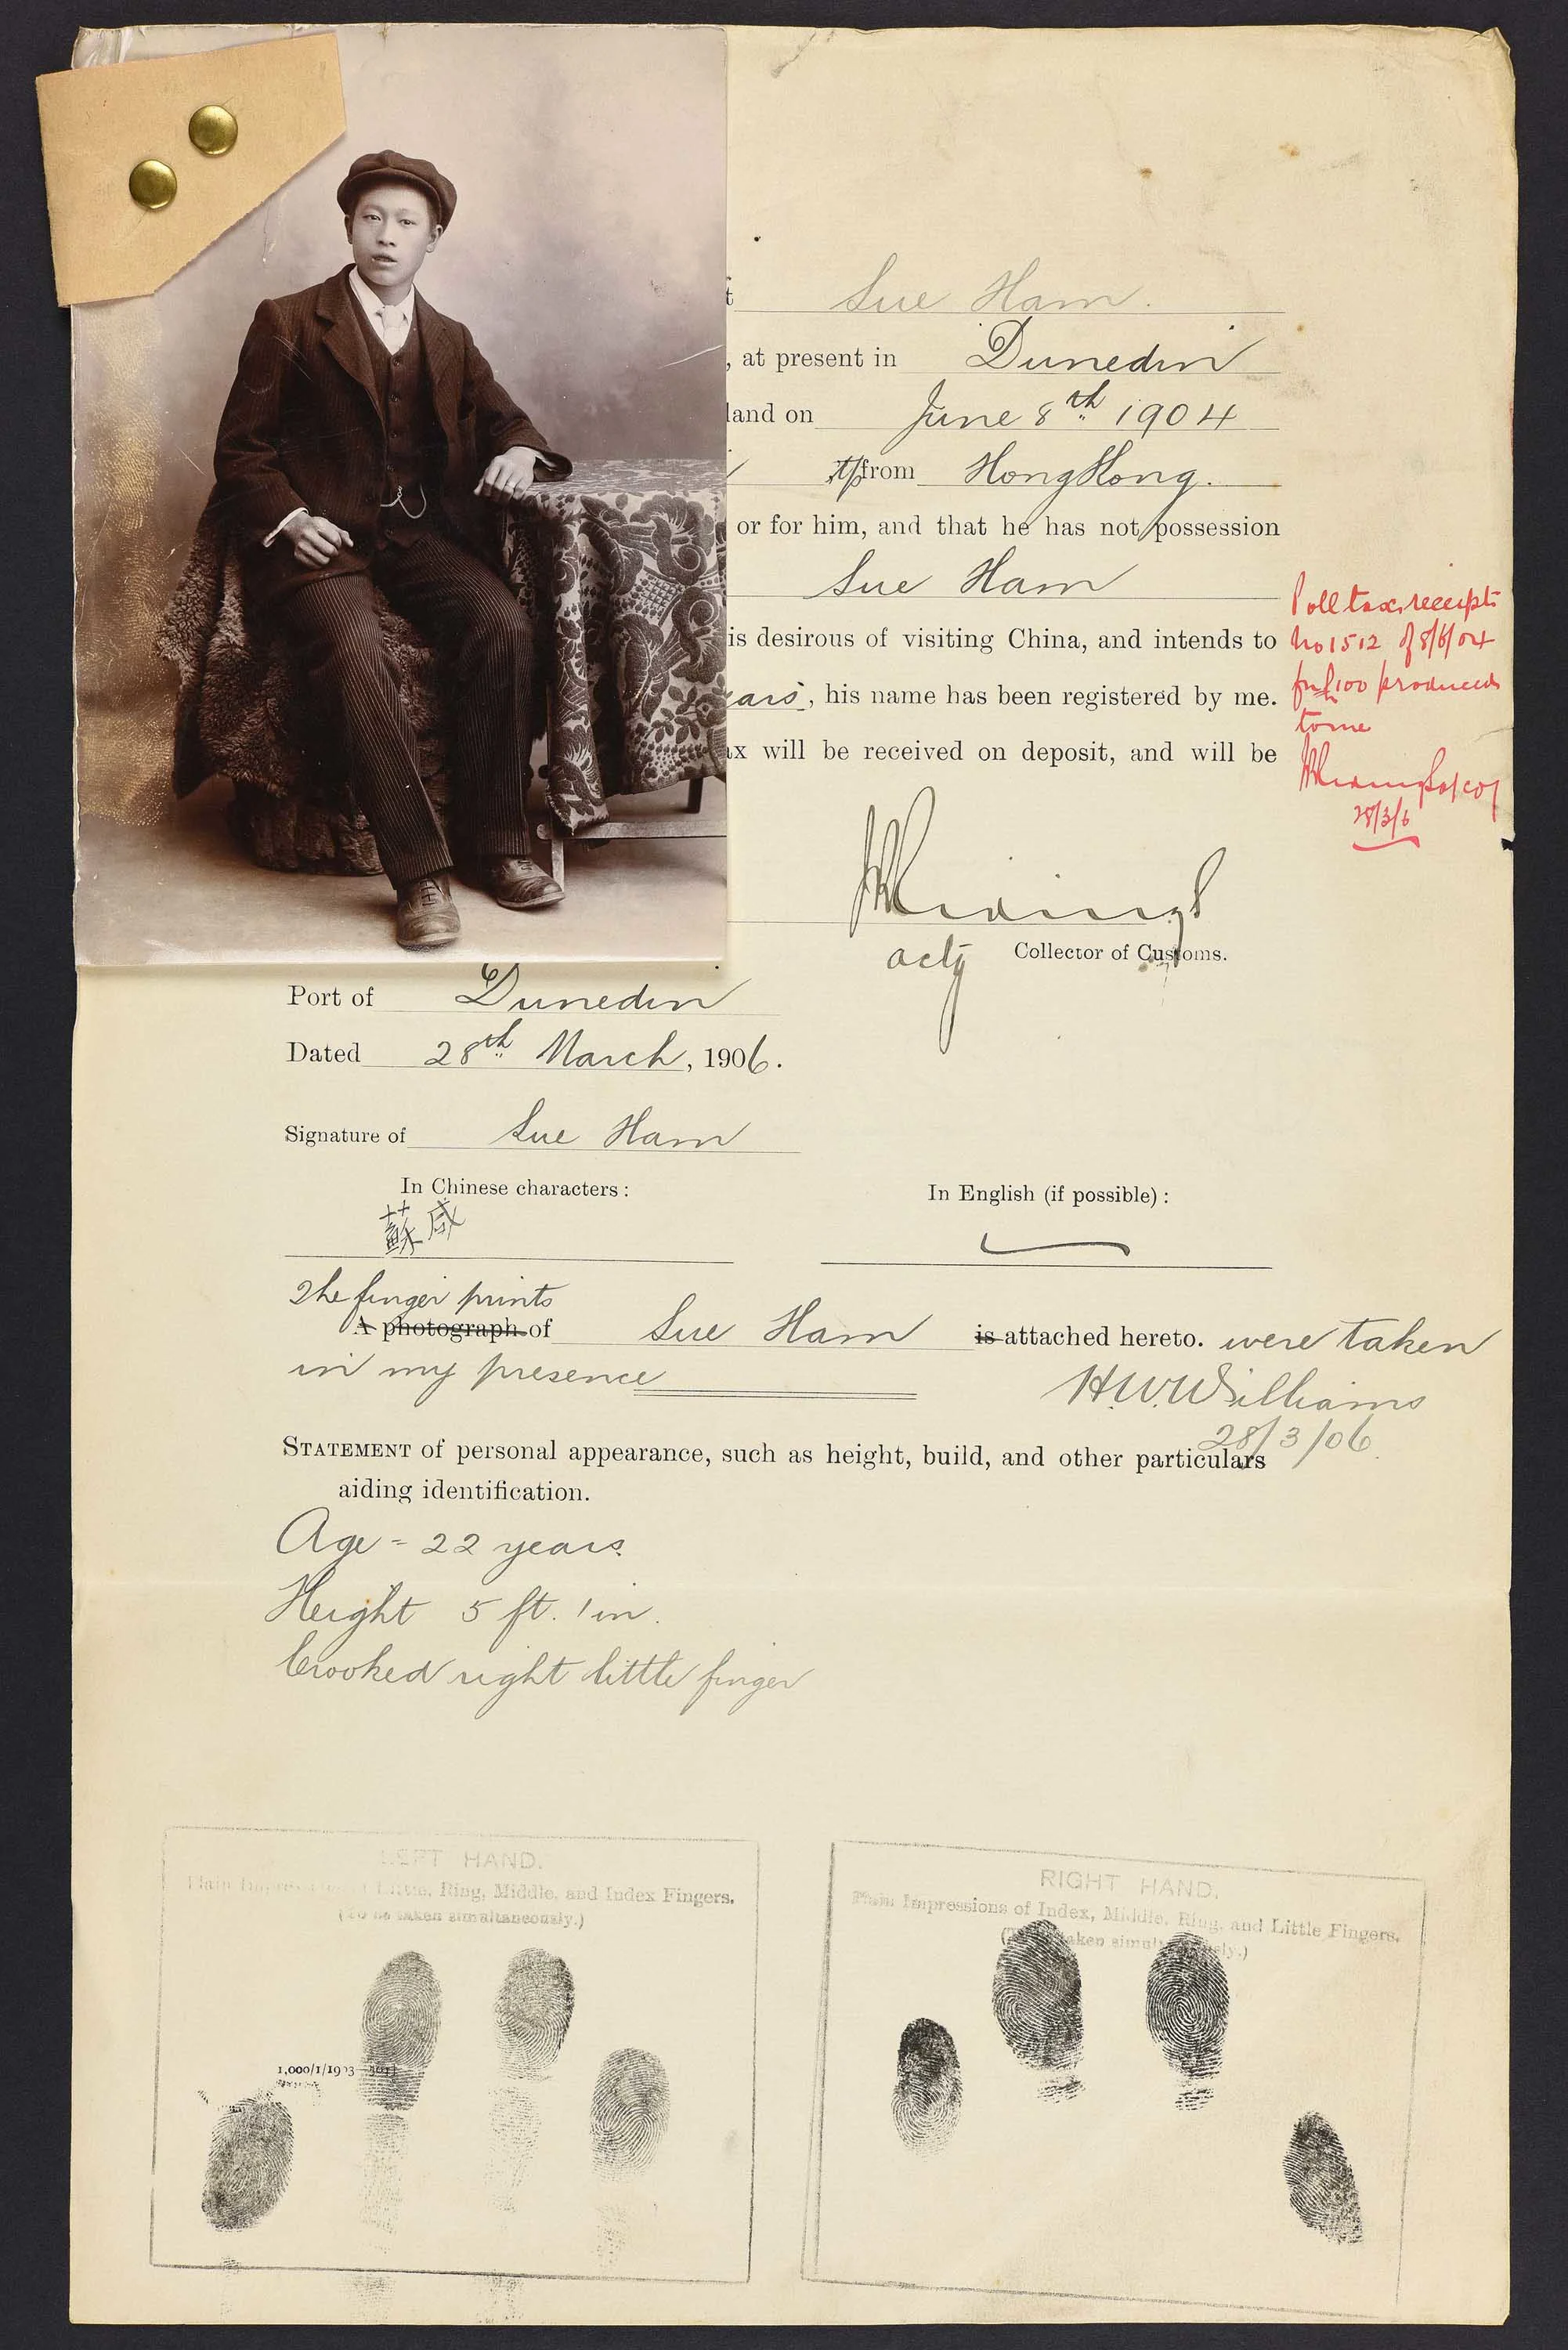 Sue Ham.
, at present in Dunedin
land on June 8th 1904
from Hong Kong.
or for him, and that he has not possession
Sue Ham
is desirous of visiting China, and intends to
ears, his name has been registered by me.
ax will be received on deposit, and will be
Poll tax receipt
No 1512 of 8/6/04
for £100 produced
to me
28/3/6
actg Collector of Customs.
Port of Dunedin
Dated 28th March, 1906.
Signature of Sue Ham
In Chinese characters:
In English (if possible):
蘇咸
The finger prints
A photograph of Sue Ham is attached hereto. were taken
in my presence
H.W. Williams
28/3/06
STATEMENT of personal appearance, such as height, build, and other particulars
aiding identification.
Age = 22 years.
Height 5 ft. 1 in.
Crooked right little finger
LEFT HAND.
Plain Impressions of Little, Ring, Middle, and Index Fingers.
(To be taken simultaneously.)
1,000/1/1903
RIGHT HAND.
Plain Impressions of Index, Middle, Ring, and Little Fingers.
(To be taken simultaneously.)